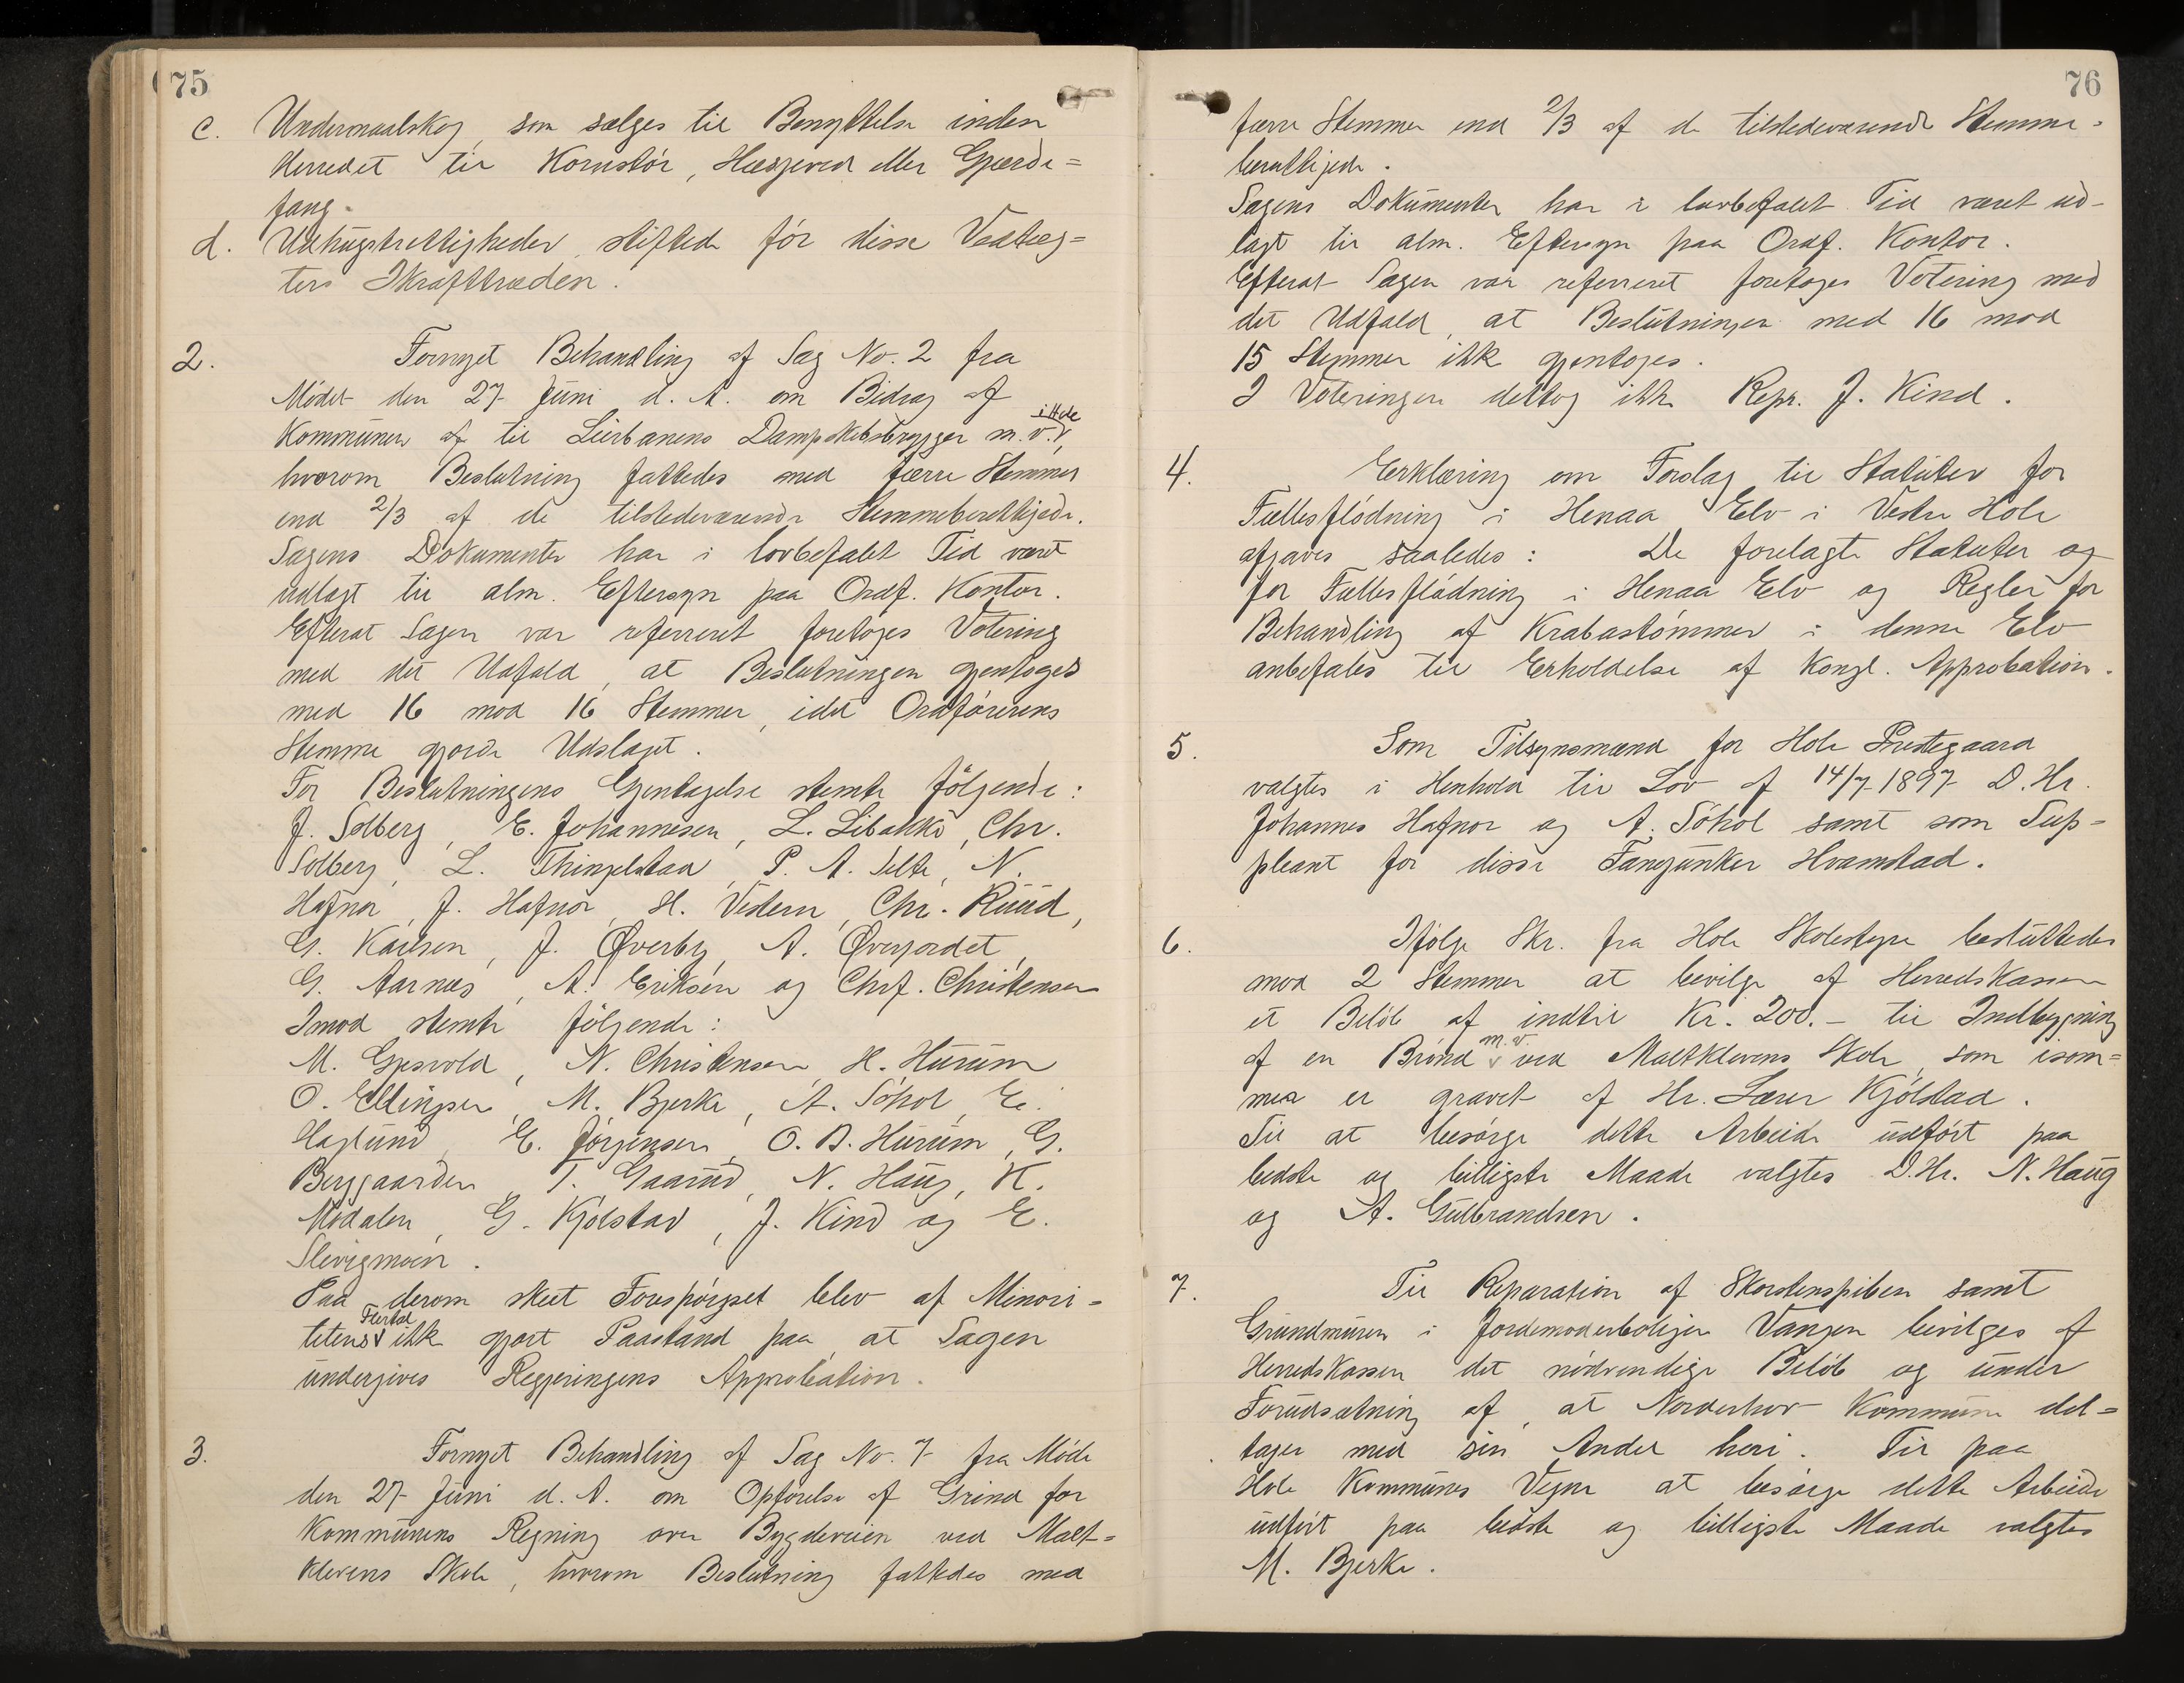 75
c. Undermaalskog, som sælges til Benyttelse inden
Herredet til Kornstör, Hæsjeved eller Gjærde=
fang.
d. Udhugstrettigheder, stiftede för disse Vedtæg=
ters Ikrafttræden.
2. Fornyet Behandling af Sag No. 2 fra
Mödet den 27 Juni d. A. om Bidrag af
i Hole
Kommunen af til Lierbanens Dampskibsbrygger m. v. V,
hvorom Beslutning fattedes med færre Stemmer
end 2/3 af de tilstedeværende Stemmeberettigede.
Sagens Dokumenter har i lovbefalet Tid været
udlagt til alm. Eftersyn paa Ordf. Kontor.
Efterat Sagen var refereret foretoges Votering
med det Udfald, at Beslutningen gjentoges
med 16 mod 16 Stemmer, idet Ordförerens
Stemme gjorde Udslaget.
For Beslutningens Gjentagelse stemte fölgende:
J. Solberg, E. Johannesen, L. Libakke, Chr.
Solberg, L. Thingelstad, P. A. Selte, N.
Hafnor, J. Hafnor, H. Vestern, Chr. Ruud,
G. Karlsen, J. Øverby, A. Øverjordet,
G. Aarnæs, A. Eriksen og Chrf. Christensen
Imod stemte fölgende:
M. Gjesvold, N. Christensen H. Hurum
O. Ellingsen, M. Bjerke, A. Söhol, E.
Haglund, E. Jörgensen, O. B. Hurum, G.
Berggaarden, T. Gaarud, N. Haug, K.
Modalen, G. Kjölstad, J. Kind og E.
Slevigmoen.
Paa derom skeet Forespörgsel blev af Minori=
Flertal
tetens V ikke gjort Paastand paa, at Sagen
undergives Regjeringens Approbation.
3. Fornyet Behandling af Sag No. 7 fra Möde
den 27 Juni d. A. om Opförelse af Grind for
Kommunens Regning over Bygdeveien ved Malt=
klevens Skole, hvorom Beslutning fattedes med
76
færre Stemmer end 2/3 af de tilstedeværende Stemme=
berettigede.
Sagens Dokumenter har i lovbefalet Tid været ud-
lagt til alm. Eftersyn paa Ordf. Kontor.
Efterat Sagen var refereret foretoges Votering med
det Udfald, at Beslutningen med 16 mod
15 Stemmer ikke gjentoges.
I Voteringen deltog ikke Repr. J. Kind.
4. Erklæring om Forslag til Statuter for
Fællesflödning i Henaa Elv i Vestre Hole
afgaves saaledes: De forelagte Statuter og
for Fællesflödning i Henaa Elv og Regler for
Behandling af Krabastömmer i denne Elv
anbefales til Erholdelse af Kongl. Approbation.
5. Som Tilsynsmænd for Hole Prestegaard
valgtes i Henhold til Lov af 14/7 1897 D. Hr.
Johannes Hafnor og A. Söhol samt som Sup=
pleant for disse Fanejunker Hvamstad.
6. Ifölge Skr. fra Hole Skolestyre besluttedes
mod 2 Stemmer at bevilge af Herredskassen
et Belöb af indtil Kr. 200.- til Indbygning
m. v.
af en Brönd v ved Maltklevens Skole, som isom=
mer er gravet af Hr. Lærer Kjölstad.
Til at besörge dette Arbeide udfört paa
bedste og billigste Maade valgtes D. Hr. N. Haug
og A. Gulbrandsen.
7. Til Reparation af Skorstenspiben samt
Grundmuren i Jordemoderboligen Vangen bevilges af
Herredskassen det nödvendige Belöb og under
Forudsætning af, at Norderhov Kommune del=
tager med sin Andel heri. Til paa
Hole Kommunes Vegne at besörge dette Arbeide
udfört paa bedste og billigste Maade valgtes
M. Bjerke.